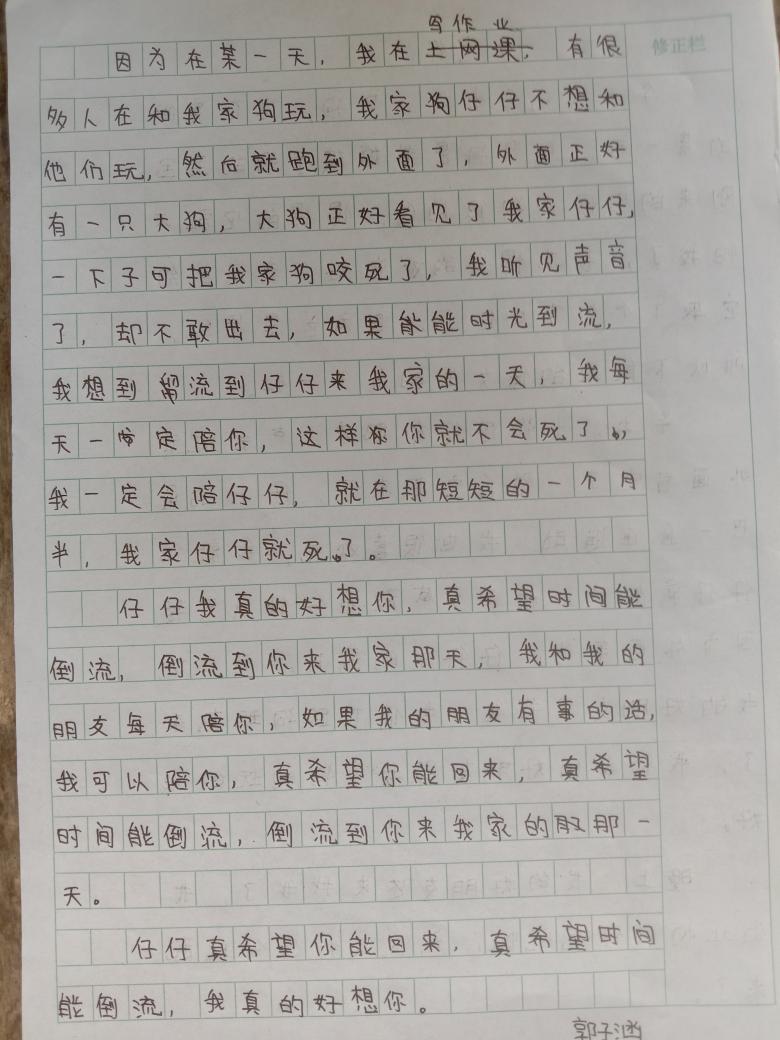 写作业
因为在某一天，我在上网课，有很
修正栏
多人在和我家狗玩，我家狗仔仔不想和
他们玩，然后就跑到外面了，外面正好
有一只大狗，大狗正好看见了我家仔仔，
一下子可把我家狗咬死了，我听见声音
了，却不敢出去，如果能能时光到流，
我想到流到仔仔来我家的一天，我每
天一定陪你，这样你你就不会死了，
我一定会陪仔仔，就在那短短的一个月
半，我家仔仔就死了。
仔仔我真的好想你，真希望时间能
倒流，倒流到你来我家那天，我和我的
朋友每天陪你，如果我的朋友有事的话，
我可以陪你，真希望你能回来，真希望
时间能倒流，倒流到你来我家的那一
天。
仔仔真希望你能回来，真希望时间
能倒流，我真的好想你。
郭子涵